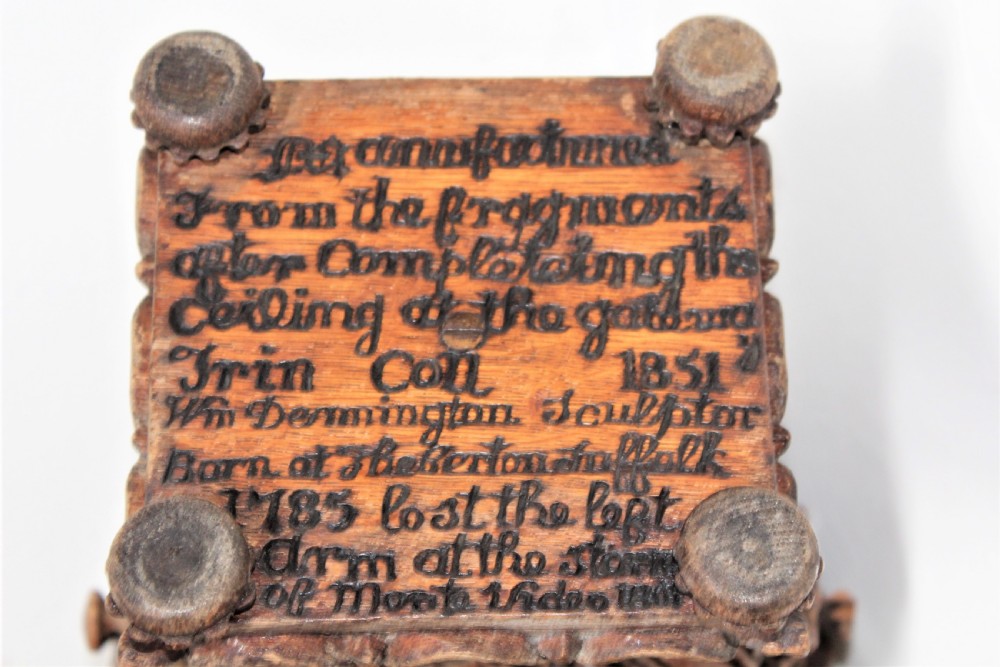 Manufactured
From the fraggments
after Completeting the
Ceiling at the gateway
Trin Coll 1851
Wm Dennington Sculptor
Born at Theberton Suffolk
1785 lost the left
Arm at the storm
of Monte Video